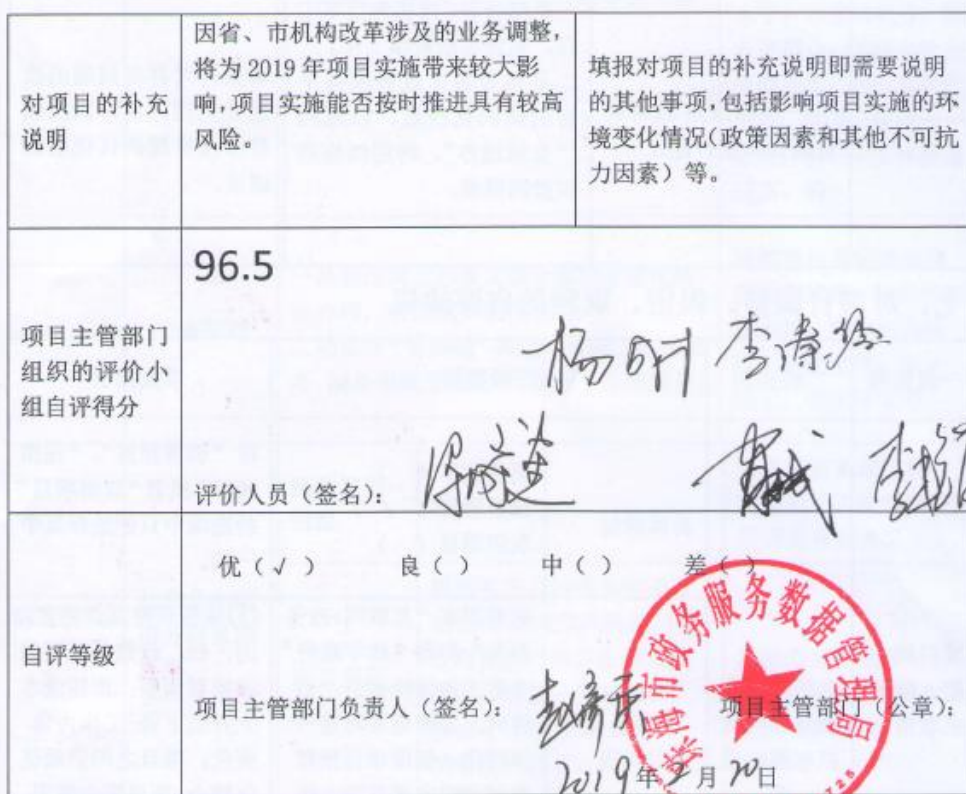 对项目的补充
说明
因省、市机构改革涉及的业务调整，
将为 2019 年项目实施带来较大影
响，项目实施能否按时推进具有较高
风险。
填报对项目的补充说明即需要说明
的其他事项，包括影响项目实施的环
境变化情况（政策因素和其他不可抗
力因素）等。
项目主管部门
组织的评价小
组自评得分
96.5
评价人员（签名）：
自评等级
优（√） 良（） 中（） 差（）
项目主管部门负责人（签名）： 项目主管部门（公章）：
海市政务服务数据管理局
2019年 月20日